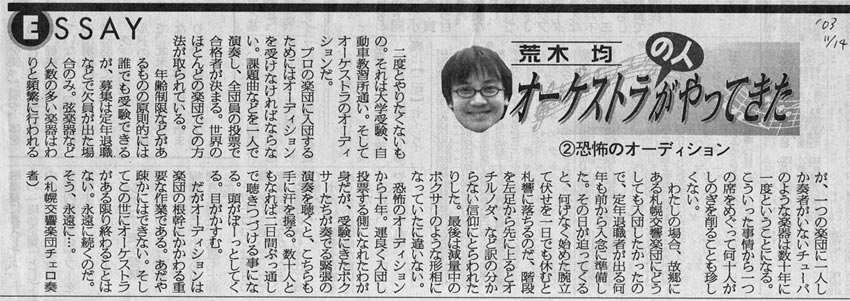 ESSAY
'03
11/14
荒木 均
オーケストラの人がやってきた
②恐怖のオーディション
二度とやりたくないも
の。それは大学受験、自
動車教習所通い。そして
オーケストラのオーディ
ションだ。
プロの楽団に入団する
ためにはオーディション
を受けなければならな
い。課題曲などを一人で
演奏し、全団員の投票で
合格者が決まる。世界の
ほとんどの楽団でこの方
法が取られている。
年齢制限などがあ
るものの原則的には
誰でも受験できる
が、募集は定年退職
などで欠員が出た場
合のみ。弦楽器など
人数の多い楽器はわ
りと頻繁に行われる
が、一つの楽団に一人し
か奏者がいないチューバ
のような楽器は数十年に
一度ということになる。
こういった事情から一つ
の席をめぐって何十人が
しのぎを削ることも珍し
くない。
わたしの場合、故郷に
ある札幌交響楽団にどう
しても入団したかったの
で、定年退職者が出る何
年も前から入念に準備し
た。その日が迫ってくる
と、何げなく始めた腕立
て伏せを一日でも休むと
札響に落ちるのだ、階段
を左足から先に上るとオ
チルノダ、など訳の分か
らない信仰にとらわれた
りした。最後は減量中の
ボクサーのような形相に
なっていたに違いない。
恐怖のオーディション
から十年。運良く入団し
投票する側になれたわが
身だが、受験にきたボク
サーたちが奏でる緊張の
演奏を聴くと、こちらも
手に汗を握る。数十人と
もなれば一日間ぶっ通し
で聴きつづける事にな
る。頭がぼーっとしてく
る。目がかすむ。
だがオーディションは
楽団の根幹にかかわる重
要な作業である。あだや
疎かにはできない。そし
てこの世にオーケストラ
がある限り終わることは
ない。永遠に続くのだ。
そう、永遠に…。
（札幌交響楽団チェロ奏
者）